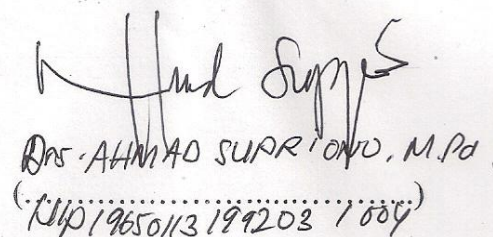 Drs. AHMAD SUPRIONO, M.Pd
(..........................................)
Nip 19650113 199203 1 004